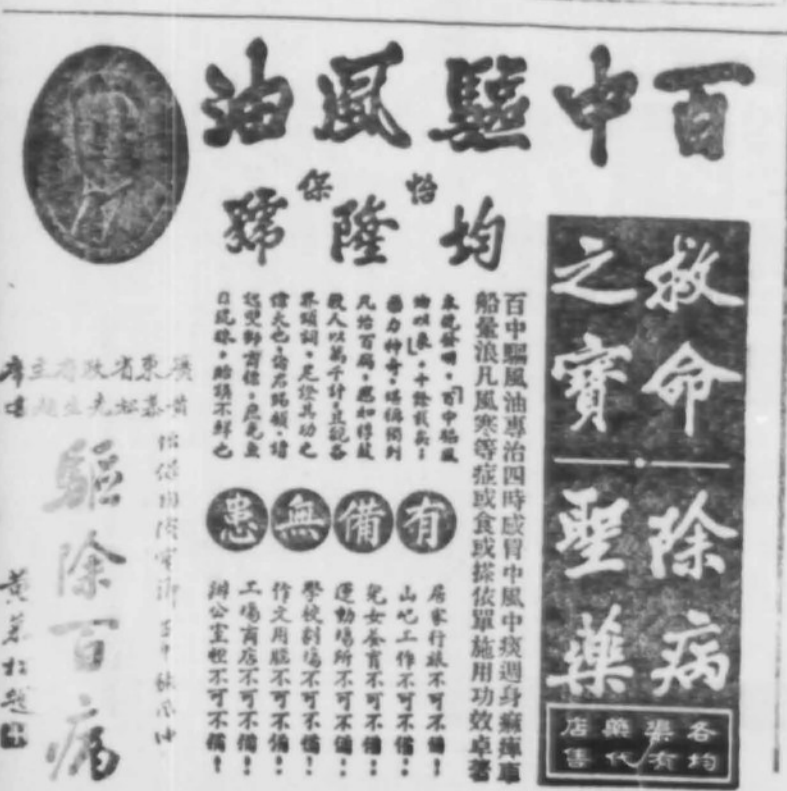 百中驅風油
怡保
均隆號
救命
之寶
除病
聖藥
各均
渠有
藥代
店售
百中驅風油專治四時感冒中風中痰週身痲痺車
船暈浪凡風寒等症或食或搽依單施用功效卓著
本號發明。「百中驅風
油」以來。十餘載矣!
藥力神奇。暢銷獨列
凡治百病。應如桴鼓
救人以萬千計。且觀各
界頌詞。足證其功之
偉大也。倘若賜顧。請
認雙獅商標。庶免魚
目混珠。貽誤不鮮也
有備無患
居家行旅不可不備!
山芭工作不可不備!
兒女養育不可不備!
運動場所不可不備!
學校劇塲不可不備!
作文用腦不可不備!
工塲商店不可不備!
辦公室裡不可不備!
廣東省政府主席
黃慕松先生題
怡保均隆寶號百中驅風油
驅除百病
黃慕松題